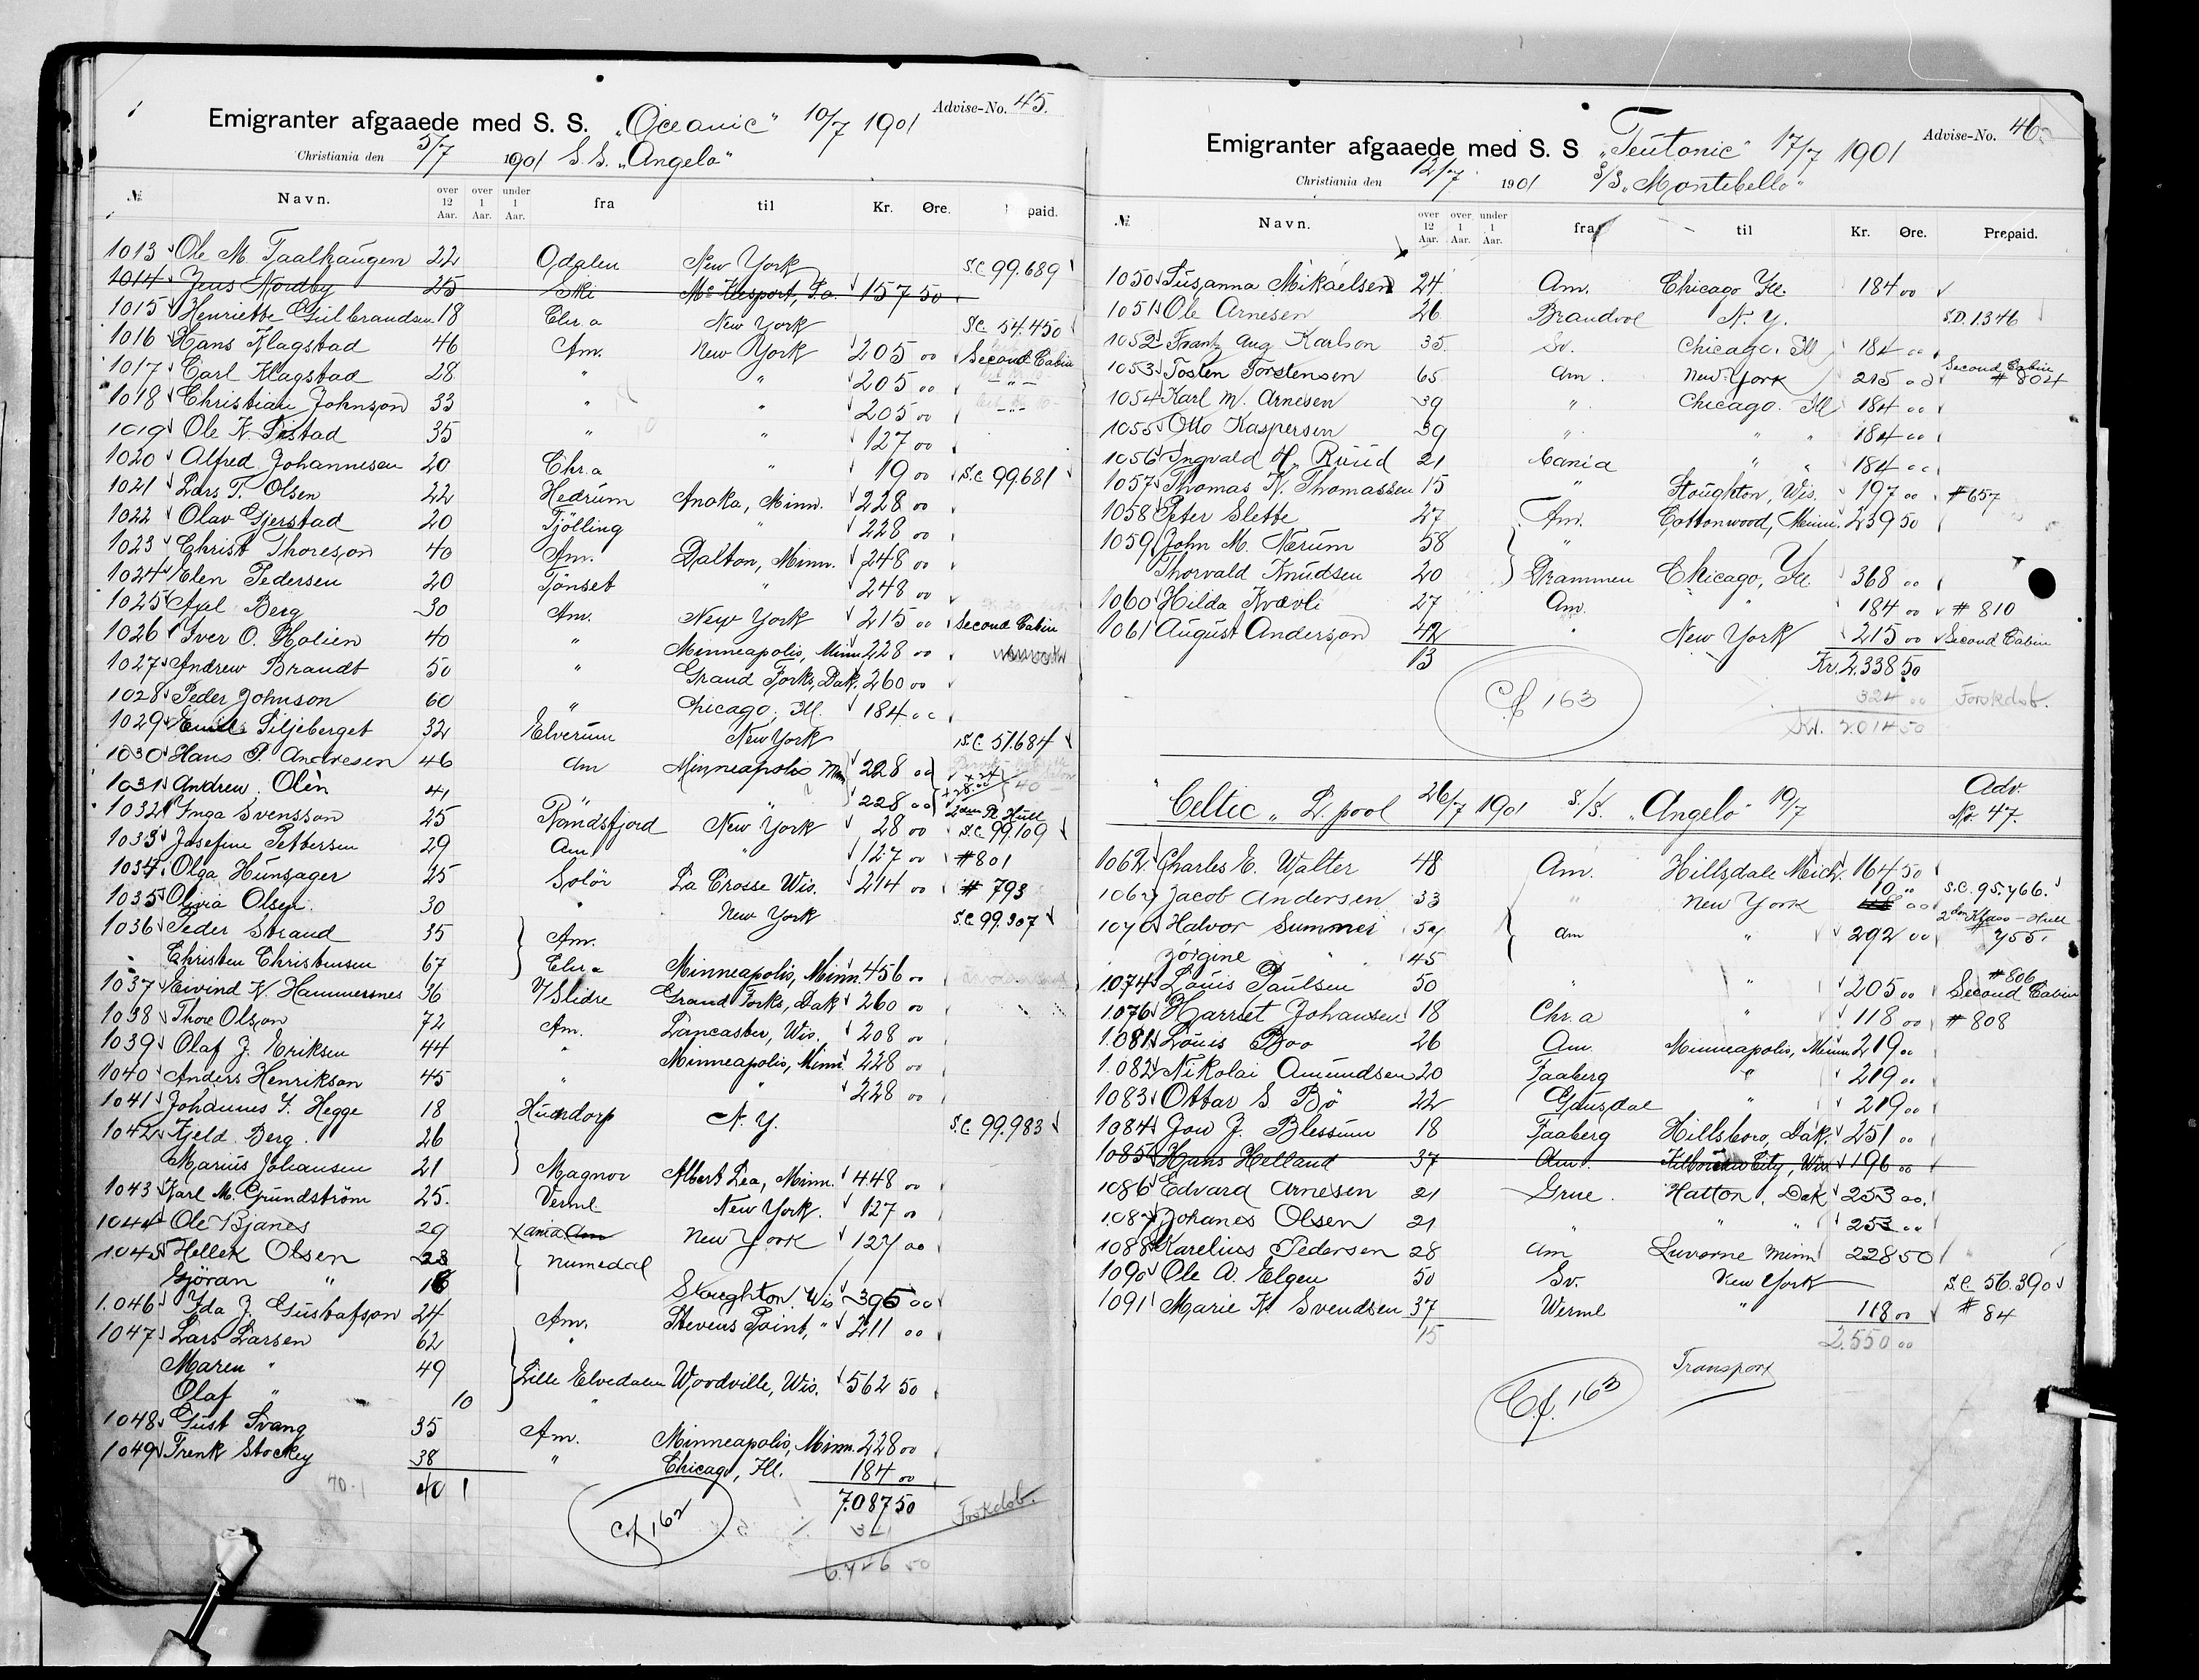 Emigranter afgaaede med S. S. „Oceanic" 10/7 1901 Advise-No. 45.
Christiania den 5/7 1901 S.S. „Angelo"
№ Navn. over 12 Aar. over 1 Aar. under 1 Aar. fra til Kr. Øre. paid.
1013 Ole M. Taalhaugen 22 Odalen New York S.C. 99.689
1014 Jens Nordby 25 Ski Mc Kesport, Pa. 157 50
1015 Henriette Gulbrandsen 18 Chr.a New York S.C. 54.450
1016 Hans Klagstad 46 Am. New York 205 00 Second Cabin
1017 Carl Klagstad 28 " " 205 00 - " -
1018 Christian Johnson 33 " " 205 00 - " -
1019 Ole K. Sistad 35 " " 127 00
1020 Alfred Johannesen 20 Chr.a " 19 00 S.C. 99.681
1021 Lars T. Olsen 22 Hedrum Anoka, Minn. 228 00
1022 Olav Gjerstad 20 Tjölling " 228 00
1023 Christ Thoreson 40 Am. Dalton, Minn. 248 00
1024 Elen Pedersen 20 Tönset " 248 00
1025 Axel Berg 30 Am. New York 215 00 Second Cabin
1026 Iver O. Holien 40 " Minneapolis, Minn. 228 00
1027 Andrew Brandt 50 " Grand Forks, Dak. 260 00
1028 Peder Johnson 60 " Chicago, Ill. 184 00
1029 Emil Siljeberget 32 Elverum New York S.C. 51.684
1030 Hans P. Andresen 46 Am Minneapolis Minn 228 00
1031 Andrew Olen 41 " " 228 00
1032 Inga Svensson 25 Randsfjord New York 28 00 S.C. 99.109
1033 Josefine Pettersen 29 Am " 127 00 #801
1034 Olga Hunsager 25 Solör La Crosse Wis. 214 00 # 793
1035 Olivia Olsen 30 " New York S.C. 99.307
1036 Peder Strand 35 Am.
Christen Christensen 67 Chr.a Minneapolis, Minn. 456 00
1037 Eivind K. Hammersnes 36 V Slidre Grand Forks, Dak 260 00
1038 Thore Olson 72 Am. Lancaster, Wis. 208 00
1039 Olaf J. Eriksen 44 " Minneapolis, Minn. 228 00
1040 Anders Henrikson 45 " " 228 00
1041 Johannes S. Hegge 18 Hundorp N. Y. S.C. 99.983
1042 Kjeld Berg 26
Marius Johansen 21 Magnor Albert Lea, Minn. 448 00
1043 Karl M. Grundström 25. Verml. New York. 127 00
1044 Ole Bjanes 29 Xania Am New York 127 00
1045 Hellek Olsen 23 Numedal
Gjöran " 16 Stoughton Wis 395 00
1.046 Ida J. Gustafson 24 Am. Stevens Point, " 211 00
1047 Lars Larsen 62 "
Maren " 49 Lille Elvedalen Woodville, Wis. 562 50
Olaf " 10
1048 Gust Svang 35 Am. Minneapolis, Minn. 228 00
1049 Frenk Stockey 38 " Chicago, Ill. 184 00
70.1 40 1 7.087 50
Cf 162 Forskdob.
6.726 50
Emigranter afgaaede med S. S „Teutonic" 17/7 1901 Advise-No. 46
Christiania den 12/7 1901 S/S. „Montebello"
№ Navn. over 12 Aar. over 1 Aar. under 1 Aar. fra til Kr. Øre. Prepaid.
1050 Susanna Mikaelsen 24 Am. Chicago Ill. 184 00
1051 Ole Arnesen 26 Brandvol N. Y. S.D. 1.346
1052 Frantz Aug Karlson 35. Sv. Chicago. Ill 184 00
1053 Tosten Torstensen 65 Am. New York 215 00 Second Cabin # 804
1054 Karl M. Arnesen 39 " Chicago. Ill 184 00
1055 Otto Kaspersen 39 " " " 184 00
1056 Ingvald H. Ruud 21 Xania " " 184 00
1057 Thomas K. Thomassen 15 " Stoughton, Wis. 197 00 #657
1058 Peter Slette 27 Am. Cottonwood, Minn. 239 50
1059 John M. Nærum 58 "
Thorvald Knudsen 20 Drammen Chicago, Ill 368 00
1060 Hilda Kvævli 27 Am. " 184 00 # 810
1061 August Anderson 42 " New York 215 00 Second Cabin
13 Kr. 2.338 50
Cf 163 324 00 Forskdob.
Kr. 2.014 50
„Celtic„ L.pool 26/7 1901 S/S. „Angelo" 19/7 Adv. No. 47.
1062 Charles E. Walter 48 Am. Hillsdale Mich. 164 50
Jacob Andersen 33 " New York 10 " S.C. 95.766.
1070 Halvor Summei 54 Am " 292 00 2den Klass - Hull # 755.
Jörgine " 45
1.074 Louis Paulsen 50 " " 205 00 #806 Second Cabin
1.076 Harriet Johansen 18 Chr.a " 118 00 # 808
1.081 Louis Boo 26 Am Minneapolis, Minn 219 00
1.082 Nikolai Amundsen 20 Faaberg " 219 00
1083 Ottar S. Bö 22 Gausdal " 219 00
1084 Jon J. Blessum 18 Faaberg Hillsboro, Dak. 251 00
1085 Hans Helland 37 Am. Kilbourn City, Wis. 196 00
1086 Edvard Arnesen 21 Grue. Hatton. Dak 253 00.
1.087 Johanes Olsen 21 " " " 253 00
1088 Karelius Pedersen 28 Am Luverne Minn 228 50
1090 Ole A. Elgen 50 Sv. New York S.C. 56.390
1091 Marie K. Svendsen 37 Werml " 118 00 # 84
15 2.550 00
Transport
Cf. 163